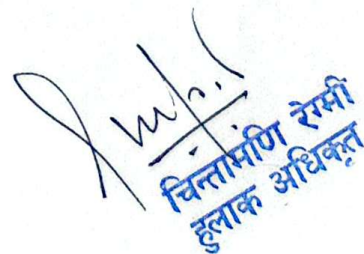 चिन्तामणि रेग्मी
हुलाक अधिकृत